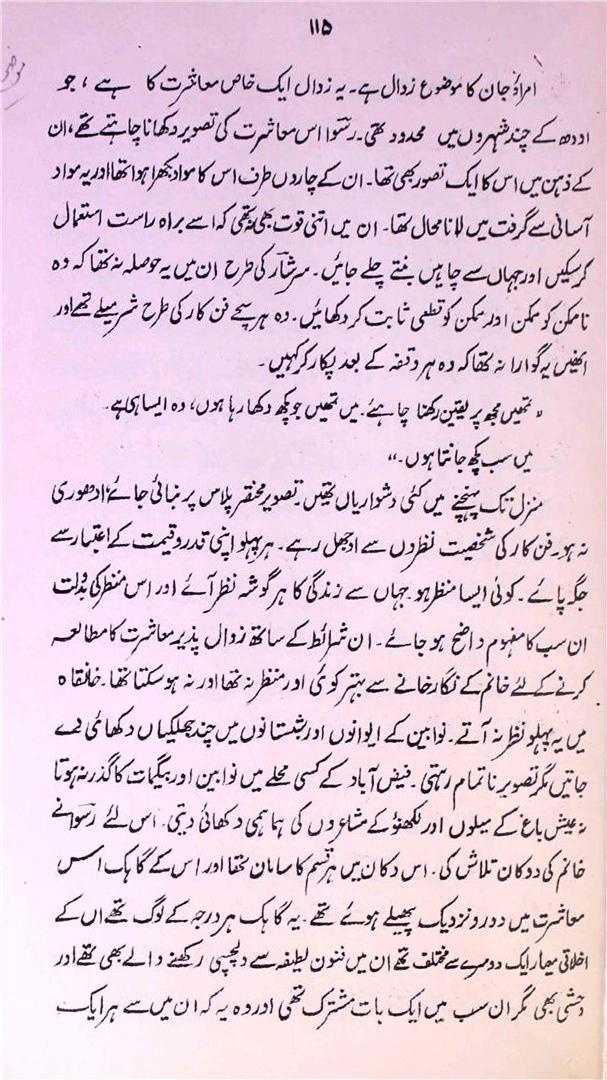 ۱۱۵
امراؤ جان کا موضوع زوال ہے۔ یہ زوال ایک خاص معاشرت کا ہے، جو
اودھ کے چند شہروں میں محدود تھی۔ رسوا اس معاشرت کی تصویر دکھانا چاہتے تھے، ان
کے ذہن میں اس کا ایک تصور بھی تھا۔ ان کے چاروں طرف اس کا مواد بکھرا ہوا تھا اور یہ مواد
آسانی سے گرفت میں لانا محال تھا۔ ان میں اتنی قوت بھی نہ تھی کہ اسے براہ راست استعمال
کر سکیں اور جہاں سے چاہیں بنتے چلے جائیں۔ سرشار کی طرح ان میں یہ حوصلہ نہ تھا کہ وہ
ناممکن کو ممکن اور ممکن کو قطعی ثابت کر دکھائیں۔ وہ ہر سچے فن کار کی طرح شرمیلے تھے اور
انھیں یہ گوارا نہ تھا کہ وہ ہر وقفہ کے بعد پکار کر کہیں۔
"تمھیں مجھ پر یقین رکھنا چاہئے۔ میں تمھیں جو کچھ دکھا رہا ہوں، وہ ایسا ہی ہے۔
میں سب کچھ جانتا ہوں۔"
منزل تک پہنچنے میں کئی دشواریاں تھیں۔ تصویر مختصر پلاس پر بنائی جائے، ادھوری
نہ ہو۔ فن کار کی شخصیت نظروں سے اوجھل رہے۔ ہر پہلو اپنی قدر و قیمت کے اعتبار سے
جگہ پائے۔ کوئی ایسا منظر ہو جہاں سے زندگی کا ہر گوشہ نظر آئے اور اس منظر کی بدولت
ان سب کا مفہوم واضح ہو جائے۔ ان شرائط کے ساتھ زوال پذیر معاشرت کا مطالعہ
کرنے کے لئے خانم کے نگار خانے سے بہتر کوئی اور منظر نہ تھا اور نہ ہو سکتا تھا۔ خانقاہ
میں یہ پہلو نظر نہ آتے۔ نوابین کے ایوانوں اور شبستانوں میں چند جھلکیاں دکھائی دے
جاتیں مگر تصویر ناتمام رہتی۔ فیض آباد کے کسی محلے میں نوابین اور بیگمات کا گذر نہ ہوتا
نہ عیش باغ کے میلوں اور لکھنؤ کے مشاعروں کی ہماہمی دکھائی دیتی۔ اس لئے رسوا نے
خانم کی دوکان تلاش کی۔ اس دکان میں ہر قسم کا سامان تھا اور اس کے گاہک اس
معاشرت میں دور و نزدیک پھیلے ہوئے تھے۔ یہ گاہک ہر درجہ کے لوگ تھے ان کے
اخلاقی معیار ایک دوسرے سے مختلف تھے ان میں فنون لطیفہ سے دلچسپی رکھنے والے بھی تھے اور
وحشی بھی مگر ان سب میں ایک بات مشترک تھی اور وہ یہ کہ ان میں سے ہر ایک